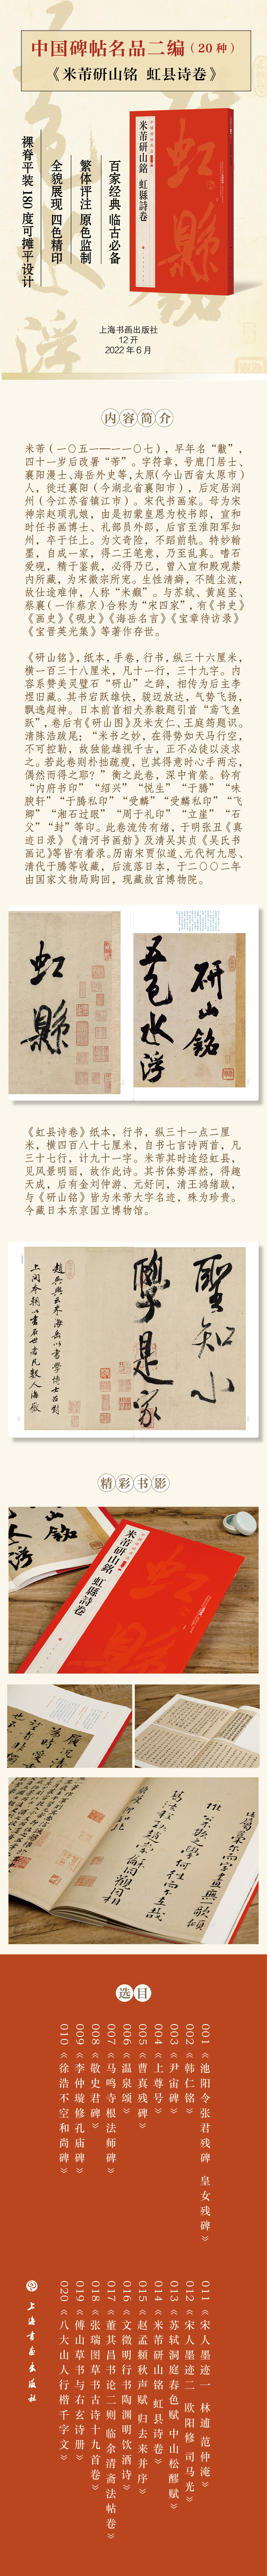 中国碑帖名品二编（20种）
《米芾研山铭 虹县诗卷》
百家经典 临古必备
繁体评注 原色监制
全貌展现 四色精印
裸脊平装 180度可摊平设计
米芾研山銘 虹縣詩卷
虹縣
上海书画出版社
12开
2022年6月
内容简介
米芾（一〇五一—一一〇七），早年名“黻”，
四十一岁后改署“芾”。字符章，号鹿门居士、
襄阳漫士、海岳外史等，太原(今山西省太原市)
人，徙迁襄阳（今湖北省襄阳市），后定居润
州（今江苏省镇江市）。宋代书画家。母为宋
神宗赵顼乳娘，由是初蒙皇恩为校书郎，宣和
时任书画博士、礼部员外郎，后官至淮阳军知
州，卒于任上。为文奇险，不蹈前轨。特妙翰
墨，自成一家，得二王笔意，乃至乱真。嗜石
爱砚，精于鉴裁，必得乃已，曾入宣和殿观禁
内所藏，为宋徽宗所宠。生性清癖，不随尘流，
故仕途难伸，人称“米癫”。与苏轼、黄庭坚、
蔡襄（一作蔡京）合称为“宋四家”，有《书史》
《画史》《砚史》《海岳名言》《宝章待访录》
《宝晋英光集》等著作存世。
《研山铭》，纸本，手卷，行书，纵三十六厘米，
横一百三十八厘米，凡十一行，三十九字。内
容系赞美灵璧石“研山”之辞，相传为后主李
煜旧藏。其书宕跃雄快，骏迈放达，气势飞扬，
飘逸超神。日本前首相犬养毅题引首“鸢飞鱼
跃”，卷后有《研山图》及米友仁、王庭筠题识。
清陈浩跋尾：“米书之妙，在得势如天马行空，
不可控勒，故独能雄视千古，正不必徒以淡求
之。若此卷则朴拙疏瘦，岂其得意时心手两忘，
偶然而得之耶？”衡之此卷，深中肯綮。钤有
“内府书印”“绍兴”“悦生”“于腾”“味
腴轩”“于腾私印”“受麟”“受麟私印”“飞
卿”“湘石过眼”“周于礼印”“立崖”“石
父”“封”等印。此卷流传有绪，于明张丑《真
迹日录》《清河书画舫》及清吴其贞《吴氏书
画记》等皆有着录。历南宋贾似道、元代柯九思、
清代于腾等收藏，后流落日本，于二〇〇二年
由国家文物局购回，现藏故宫博物院。
研山銘
五色水浮
虹縣
《虹县诗卷》纸本，行书，纵三十一点二厘
米，横四百八十七厘米，自书七言诗两首，凡
三十七行，计九十一字。米芾其时途经虹县，
见风景明丽，故作此诗。其书体势浑然，得趣
天成，后有金刘仲游、元好问，清王鸿绪跋，
与《研山铭》皆为米芾大字名迹，殊为珍贵。
今藏日本东京国立博物馆。
聖知小
學是家
精彩书影
米芾研山銘 虹縣詩卷
选目
001《池阳令张君残碑 皇女残碑》
002《韩仁铭》
003《尹宙碑》
004《上尊号》
005《曹真残碑》
006《温泉颂》
007《马鸣寺根法师碑》
008《敬史君碑》
009《李仲璇修孔庙碑》
010《徐浩不空和尚碑》
011《宋人墨迹一 林逋 范仲淹》
012《宋人墨迹二 欧阳修 司马光》
013《苏轼洞庭春色赋 中山松醪赋》
014《米芾研山铭 虹县诗卷》
015《赵孟頫秋声赋 归去来并序》
016《文徵明行书陶渊明饮酒诗》
017《董其昌书论二则 临余清斋法帖卷》
018《张瑞图草书古诗十九首卷》
019《傅山草书与右玄诗册》
020《八大山人行楷千字文》
上海书画出版社